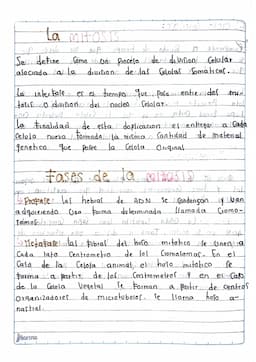 La MITOSIS
Se define como un proceso de division celular
asociada a la division de las celulas somáticas.
La interfase es el tiempo que pasa entre dos mi-
tosis o division del nucleo celular.
La finalidad de esta duplicacion es entregar a cada
celula nueva formada la misma cantidad de material
genetico que posee la celula original
Fases de la mitosis
Profase: las hebras de ADN se condensan y van
adquiriendo una forma determinada llamada cromo-
somas
Metafase: las fibras del huso mitotico se unen a
cada lado centromero de los cromosomas. En el
caso de la celula animal, el huso mitotico se
forma a partir de los centromeros y en el caso
de la celula vegetal se forman a partir de centros
organizadores de microtubulos. se llama huso a-
nastral.